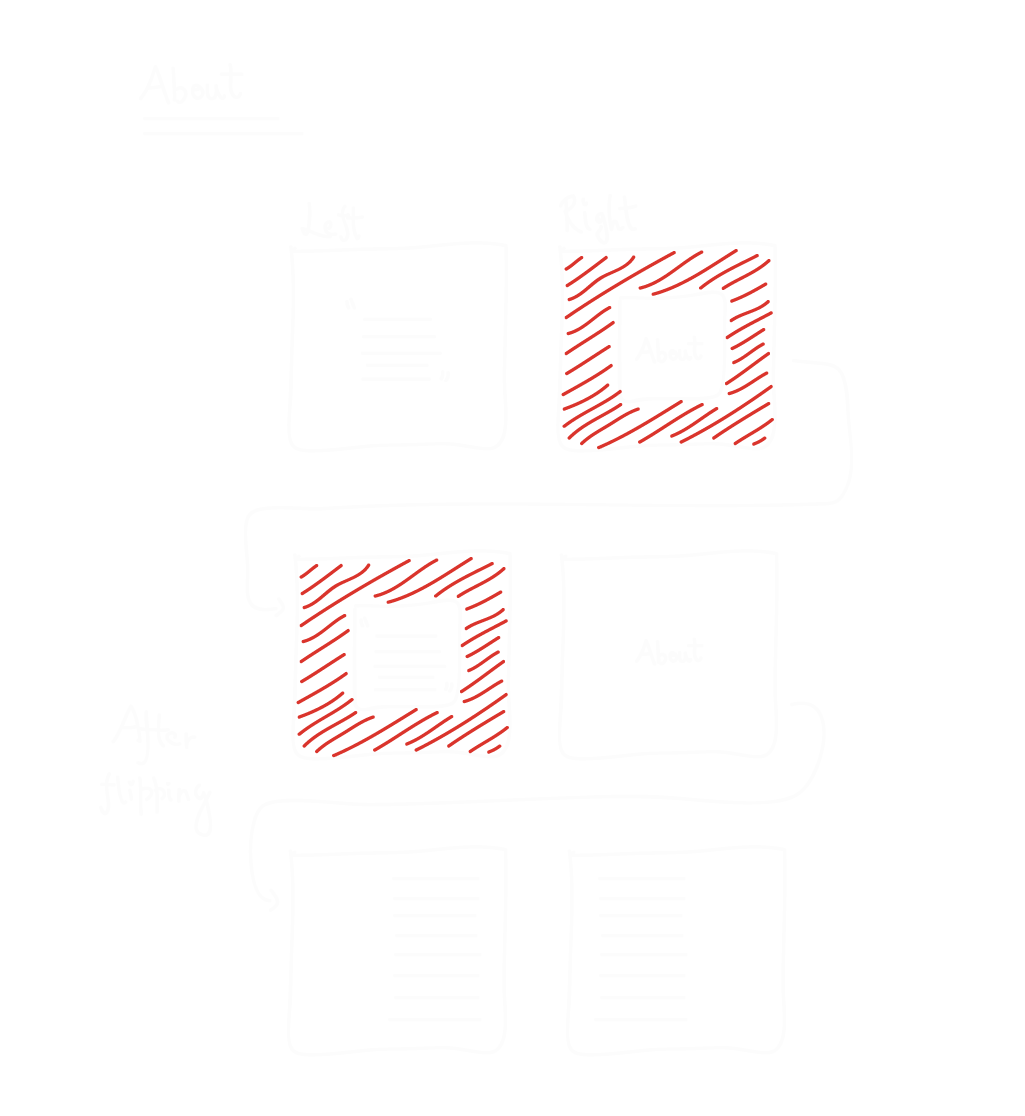 About
Left
Right
About
About
After
flipping